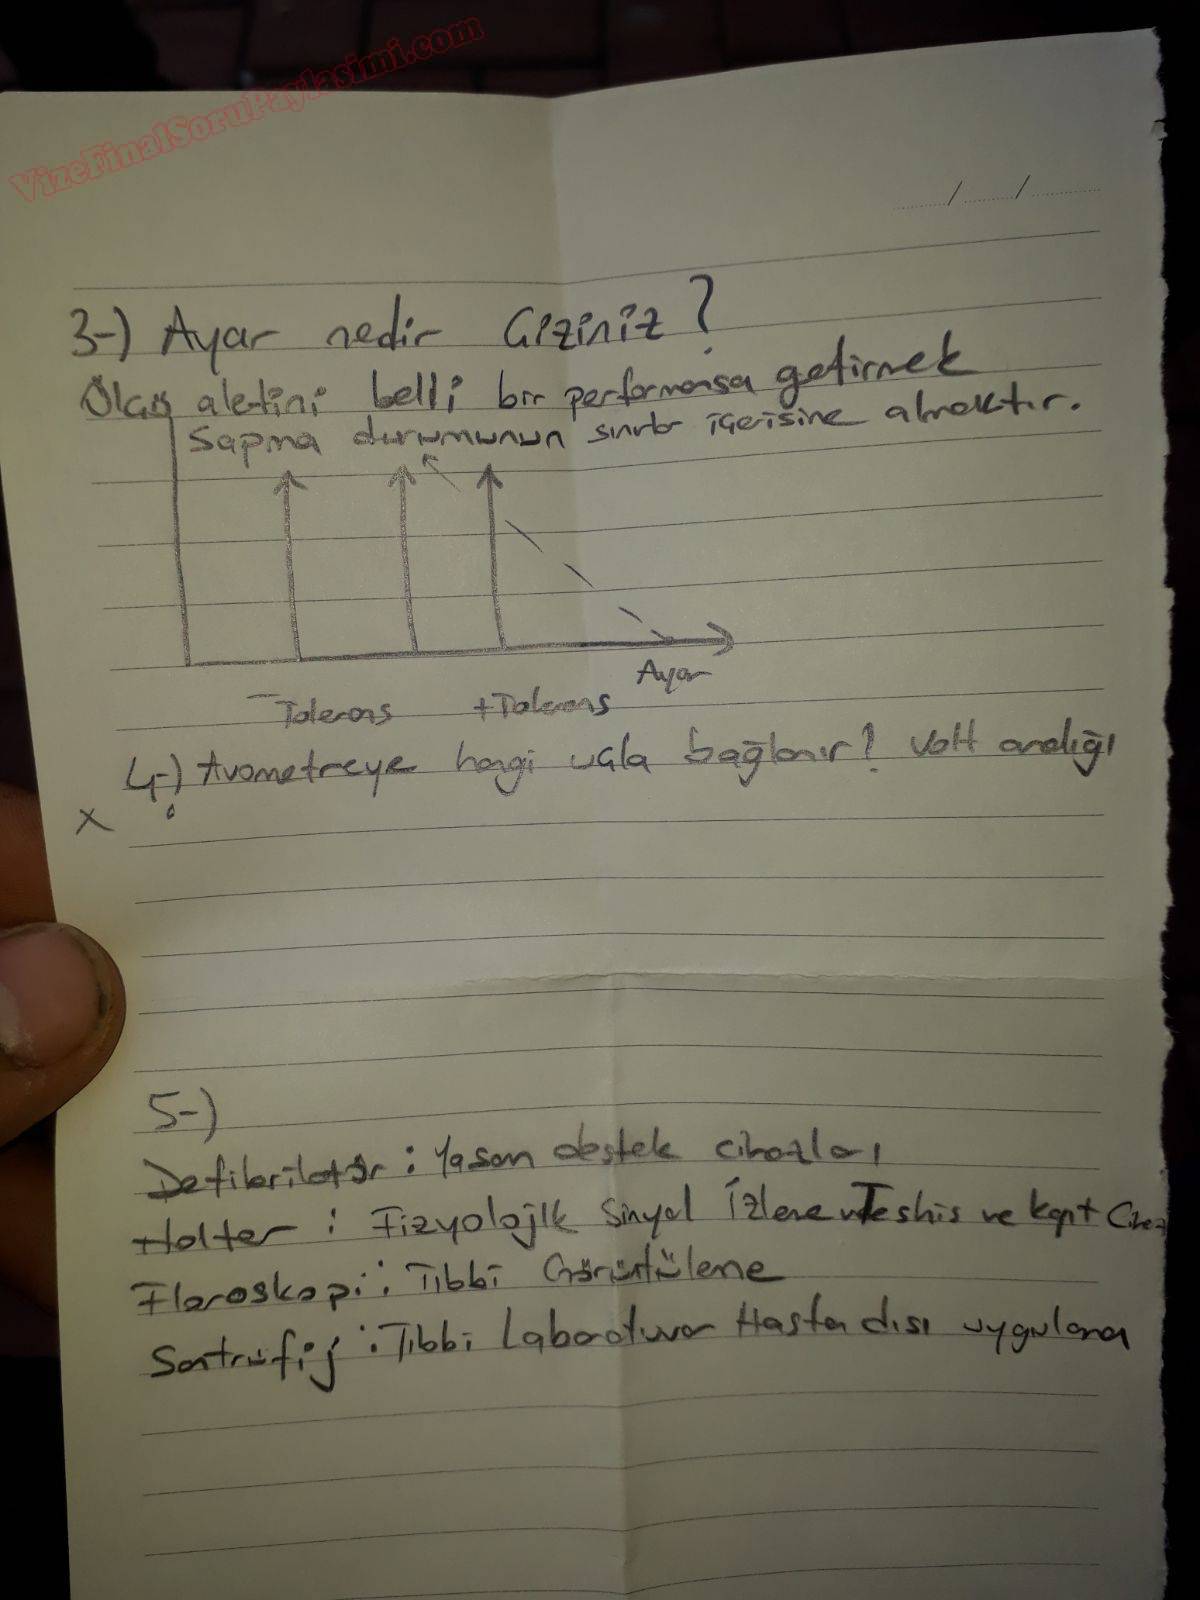 VizeFinalSoruPaylasimi.com
/ /
3-) Ayar nedir Çiziniz?
Ölçü aletini belli bir performansa getirmek
Sapma durumunun sınırlar içerisine almaktır.
Ayar
-Tolerans +Tolerans
4-) Avometreye hangi uçla bağlanır? Volt aralığı
x
5-)
Defibrilatör : Yaşam destek cihazları
Holter : Fizyolojik Sinyal İzleme Teshis ve kayıt Cihaz
Floroskopi : Tıbbi Görüntüleme
Santrüfij : Tıbbi Laboratuvar Hasta dışı uygulama